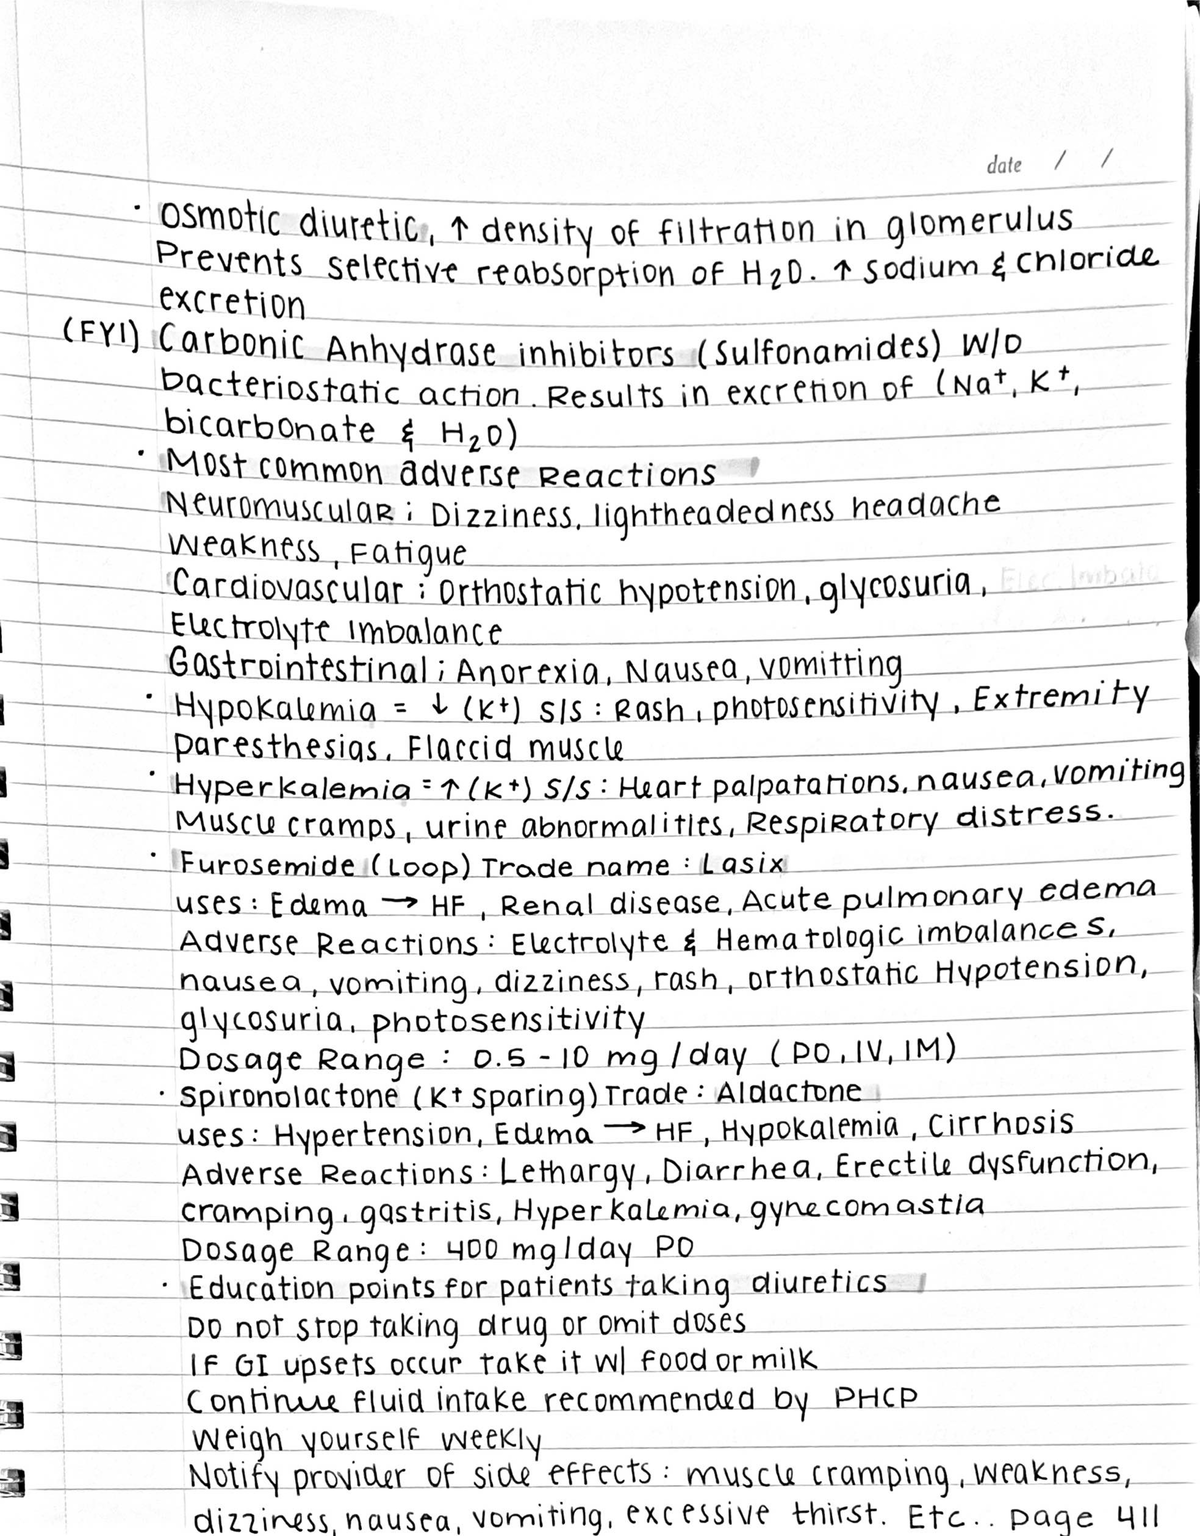 date / /
· Osmotic diuretic, ↑ density of filtration in glomerulus
Prevents selective reabsorption of H2O. ↑ sodium & chloride
excretion
(FYI) Carbonic Anhydrase inhibitors (sulfonamides) W/O
bacteriostatic action. Results in excretion of (Na+, K+,
bicarbonate & H2O)
· Most common adverse Reactions
Neuromuscular: Dizziness, lightheadedness headache
Weakness, Fatigue
Cardiovascular: Orthostatic hypotension, glycosuria,
Electrolyte Imbalance
Gastrointestinal; Anorexia, Nausea, vomitting
· Hypokalemia = ↓ (K+) S/S: Rash, photosensitivity, Extremity
paresthesias, Flaccid muscle
· Hyperkalemia = ↑ (K+) S/S: Heart palpatations, nausea, vomiting
Muscle cramps, urine abnormalities, Respiratory distress.
· Furosemide (Loop) Trade name: Lasix
uses: Edema → HF, Renal disease, Acute pulmonary edema
Adverse Reactions: Electrolyte & Hematologic imbalances,
nausea, vomiting, dizziness, rash, orthostatic Hypotension,
glycosuria, photosensitivity
Dosage Range: 0.5-10 mg/day (PO, IV, IM)
· Spironolactone (K+ sparing) Trade: Aldactone
uses: Hypertension, Edema → HF, Hypokalemia, Cirrhosis
Adverse Reactions: Lethargy, Diarrhea, Erectile dysfunction,
cramping, gastritis, Hyperkalemia, gynecomastia
Dosage Range: 400 mg/day PO
· Education points for patients taking diuretics
Do not stop taking drug or omit doses
IF GI upsets occur take it w/ food or milk
Continue fluid intake recommended by PHCP
Weigh yourself weekly
Notify provider of side effects: muscle cramping, weakness,
dizziness, nausea, vomiting, excessive thirst. Etc.. page 411